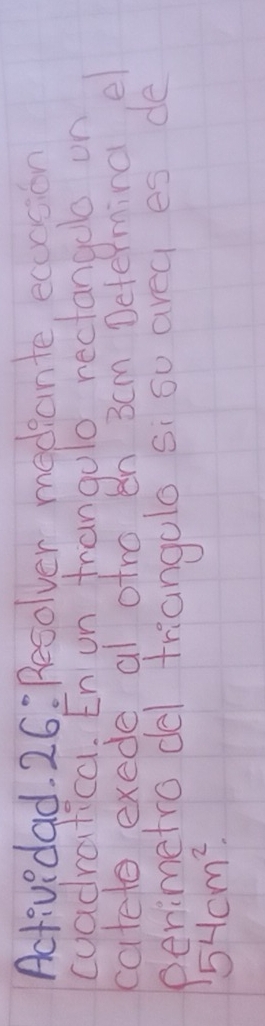 Actividad.26: Resolver mediante ecuasión
cuadratica. En un triangulo rectangulo un
cateto exede al otro en 3cm Determina el
perimetro del triangulo si su area es de
54cm².